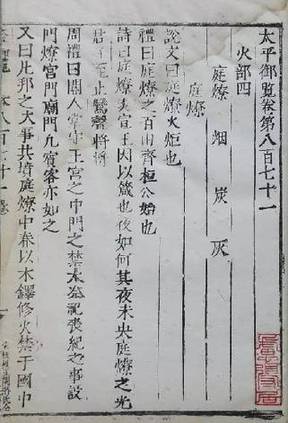 太平御覧卷第八百七十一
火部四
庭燎 烟 炭 灰
庭燎
說文曰庭燎火炬也
禮曰庭燎之百由齊桓公始也
詩曰庭燎美宣王因以箴也夜如何其夜未央庭燎之光
君子至止鸞聲將將
周禮曰閽人掌守王宮之中門之禁大祭祀喪紀之事設
門燎宮門廟門凡賓客亦如之
又曰凡邦之大事共墳庭燎中春以木鐸修火禁于國中